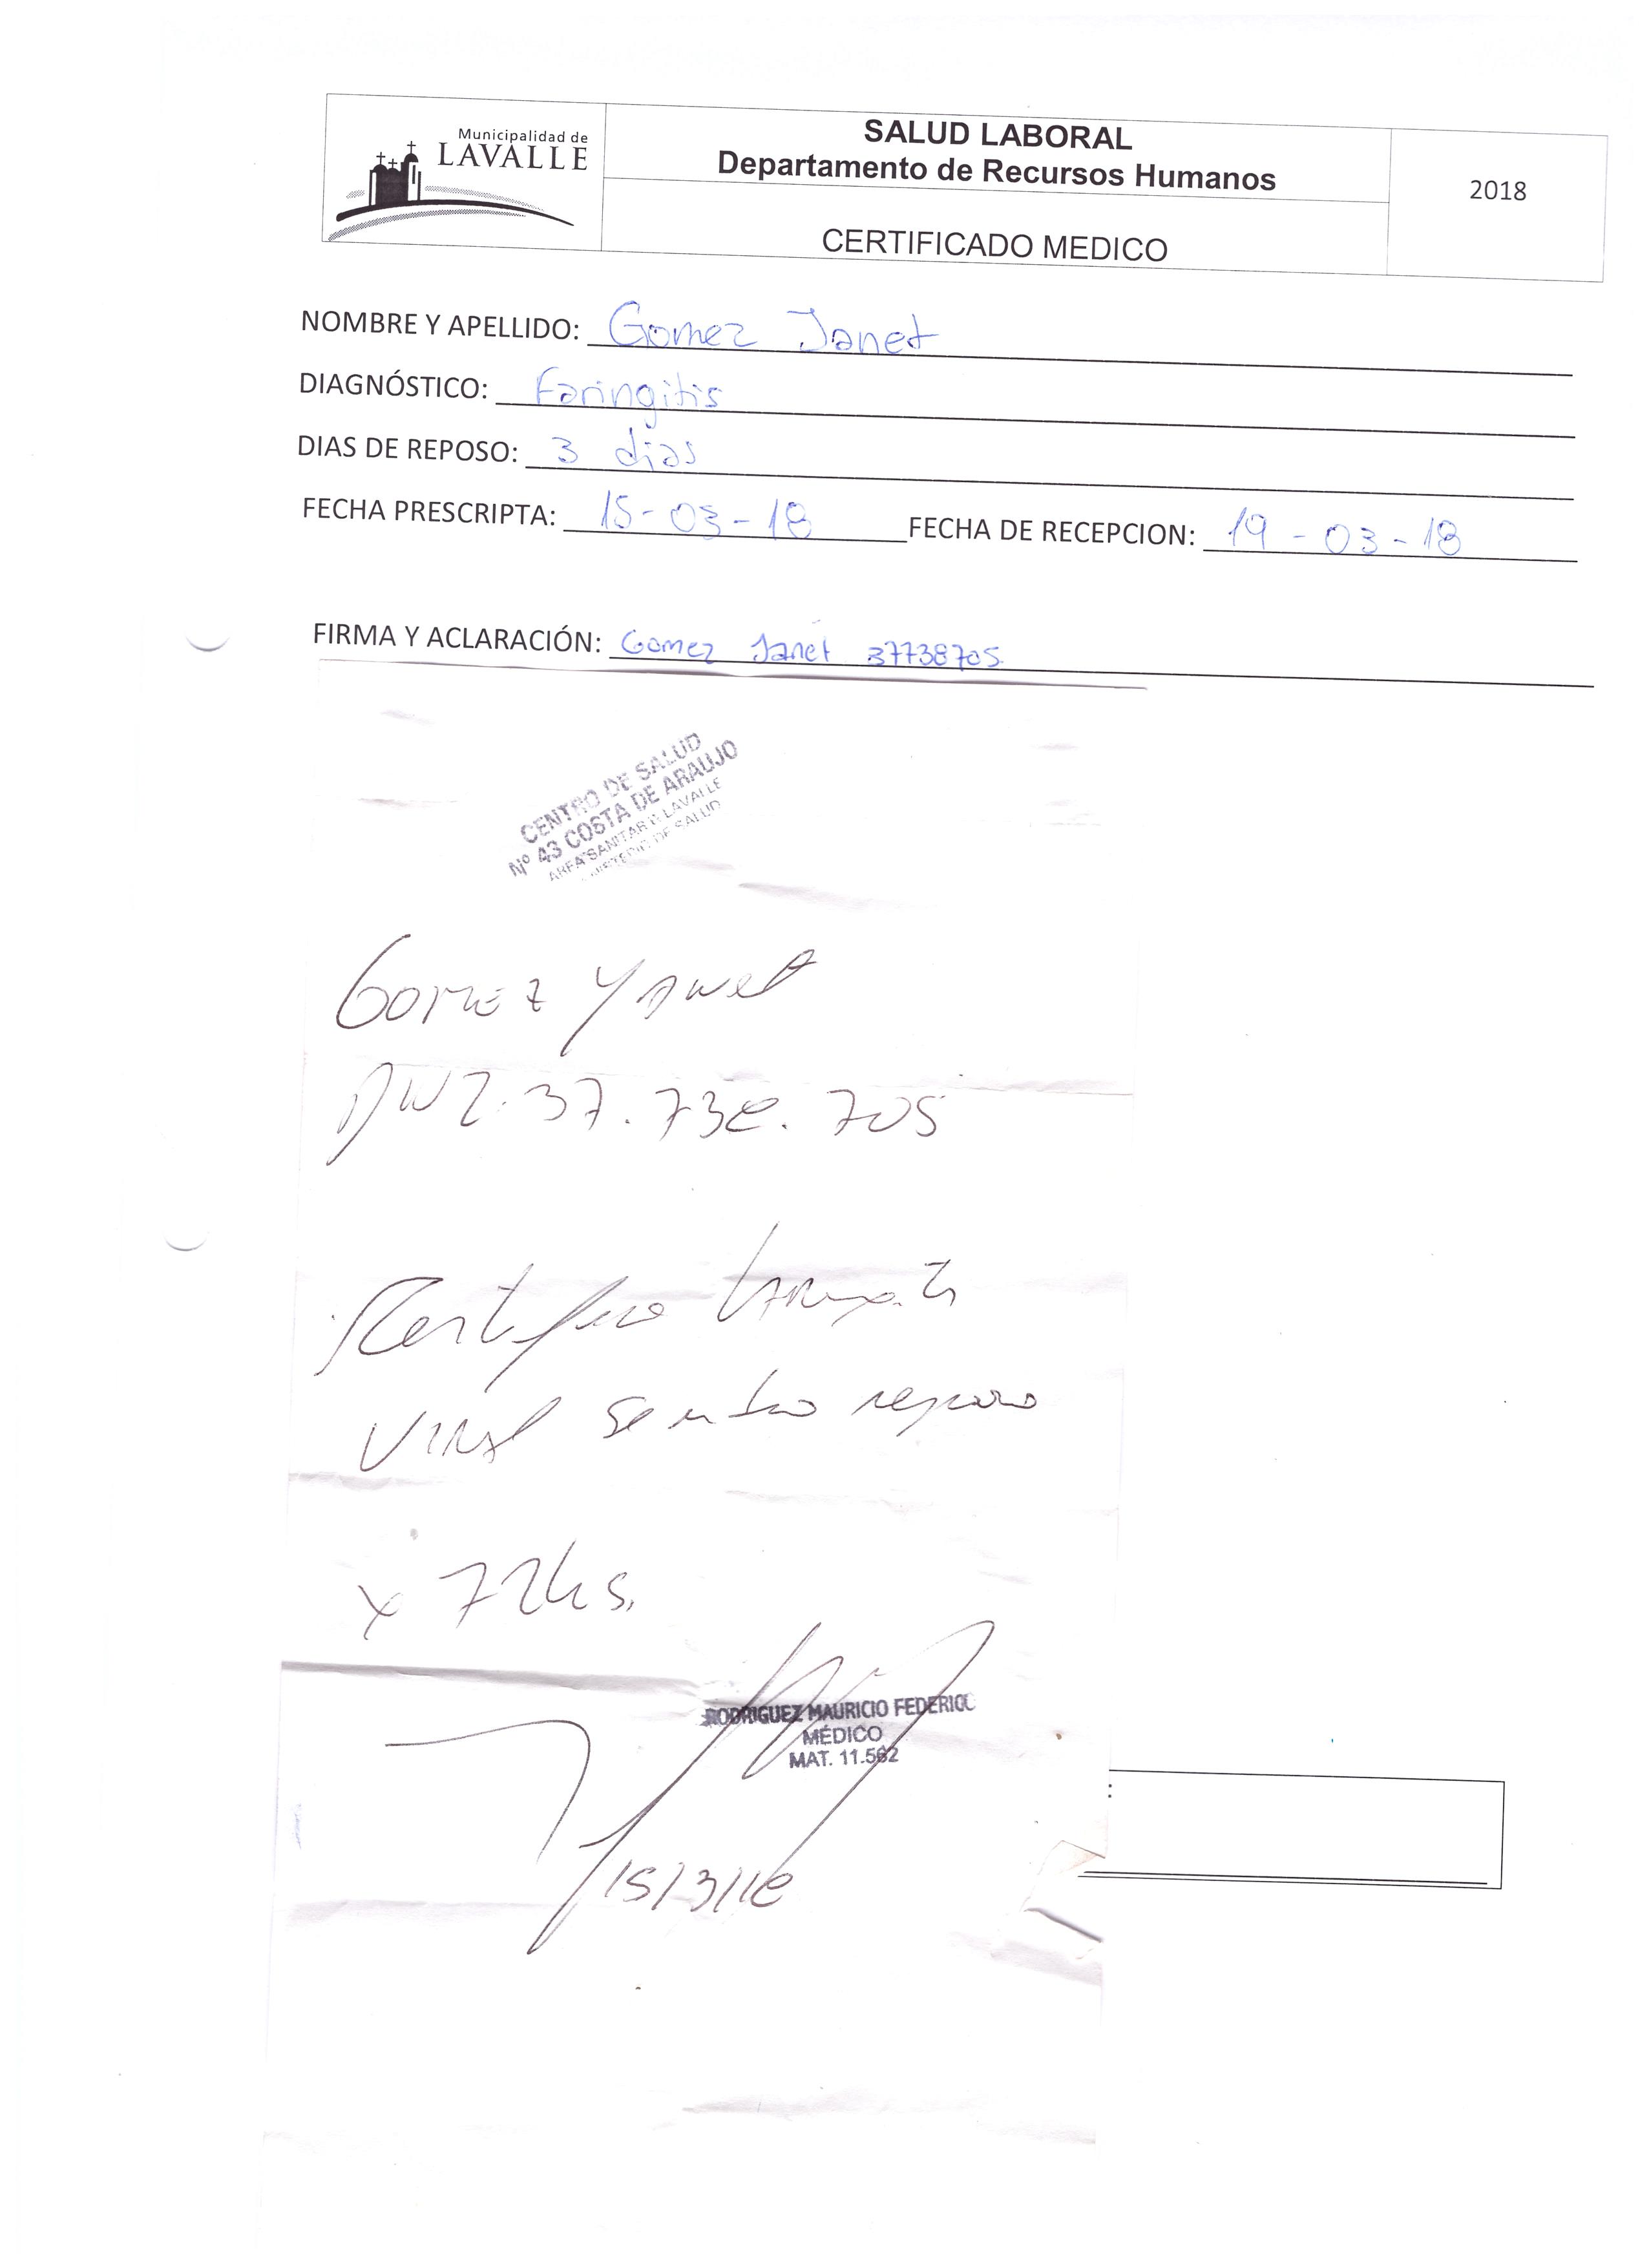 Municipalidad de
LAVALLE
SALUD LABORAL
Departamento de Recursos Humanos
CERTIFICADO MEDICO
2018
NOMBRE Y APELLIDO: Gomez Janet
DIAGNÓSTICO: Faringitis
DIAS DE REPOSO: 3 dias
FECHA PRESCRIPTA: 15-03-18 FECHA DE RECEPCION: 19-03-18
FIRMA Y ACLARACIÓN: Gomez Janet 37738705
CENTRO DE SALUD
Nº 43 COSTA DE ARAUJO
AREA SANITARIA LAVALLE
MINISTERIO DE SALUD
Gomez Yanet
DNI. 37.738.705
Certifico
viral reposo
x 72hs.
RODRIGUEZ MAURICIO FEDERICO
MÉDICO
MAT. 11.562
15/3/18
: